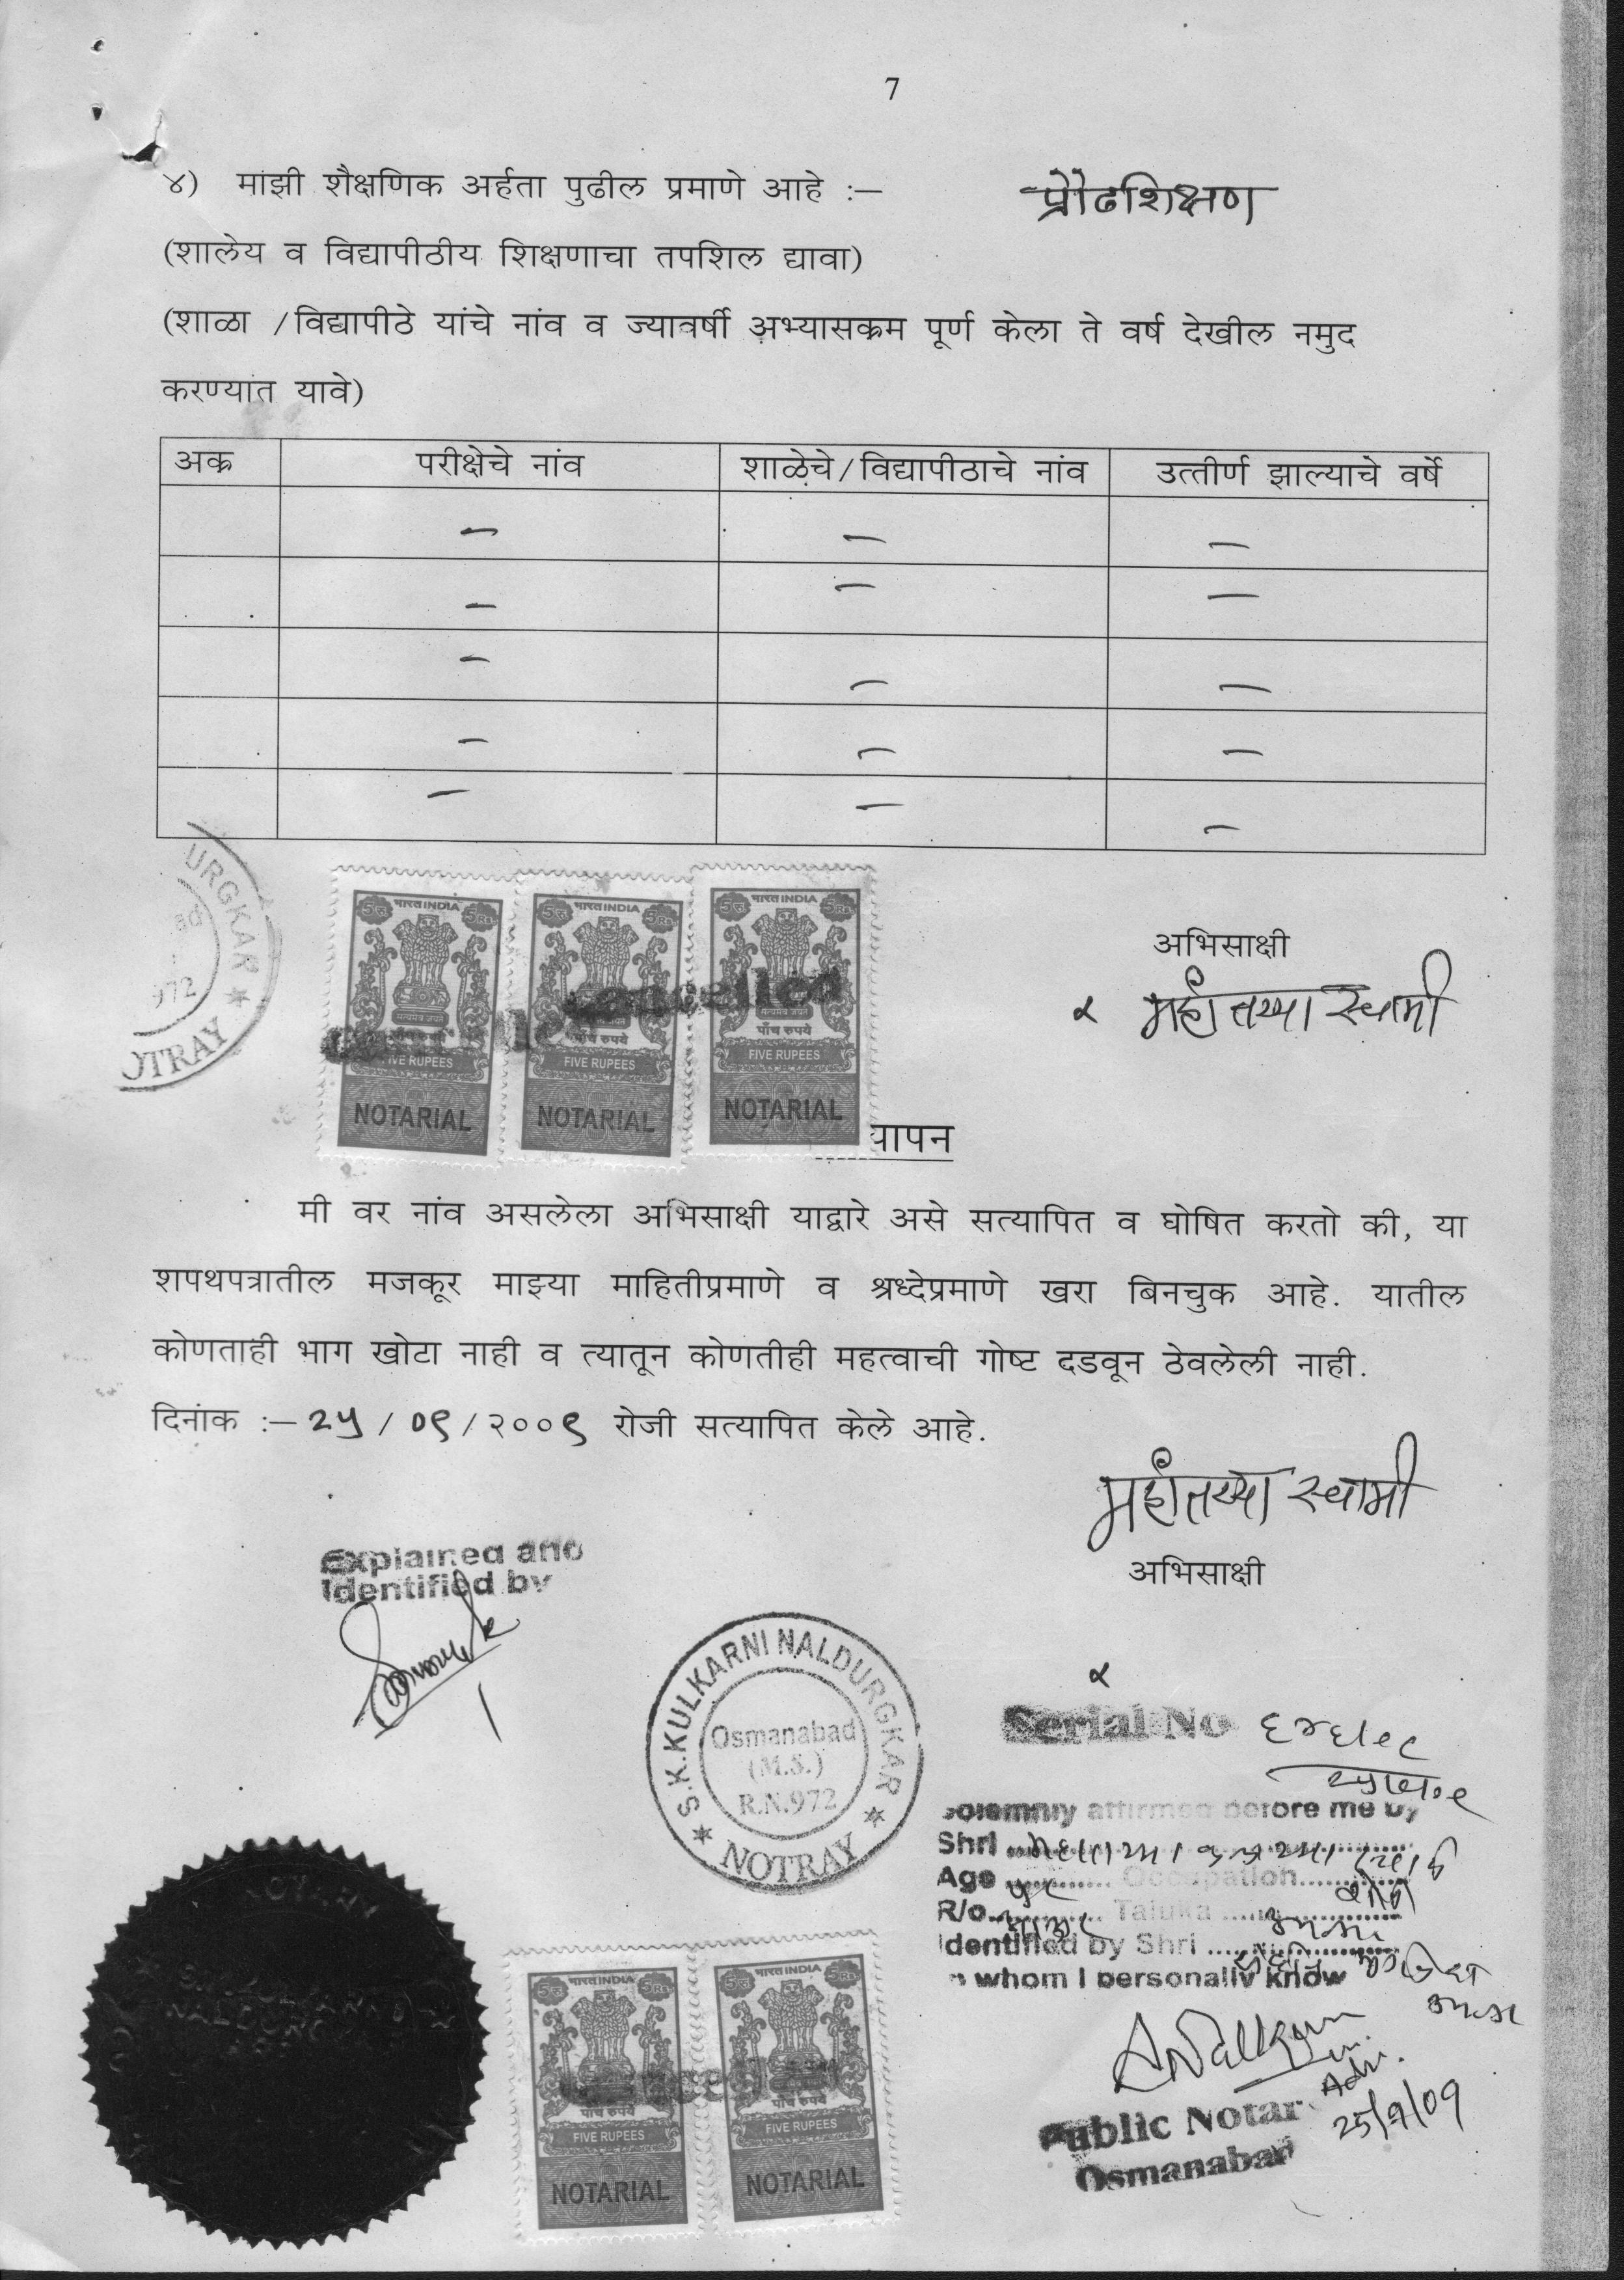 7
४) मांझी शैक्षणिक अर्हता पुढील प्रमाणे आहे :— प्रौढशिक्षण
(शालेय व विद्यापीठीय शिक्षणाचा तपशिल द्यावा)
(शाळा /विद्यापीठे यांचे नांव व ज्यावर्षी अभ्यासक्रम पूर्ण केला ते वर्ष देखील नमुद
करण्यांत यावे)
अक्र परीक्षेचे नांव शाळेचे/विद्यापीठाचे नांव उत्तीर्ण झाल्याचे वर्षे
— — —
— — —
— — —
— — —
— — —
URGKAR
972
OTRAY
भारत INDIA
5 रु 5 Rs
सत्यमेव जयते
पाँच रुपये
FIVE RUPEES
NOTARIAL
भारत INDIA
5 रु 5 Rs
पाँच रुपये
FIVE RUPEES
NOTARIAL
भारत INDIA
5 रु 5 Rs
पाँच रुपये
FIVE RUPEES
NOTARIAL
Cancelled
अभिसाक्षी
महांतय्या स्वामी
यापन
मी वर नांव असलेला अभिसाक्षी याद्वारे असे सत्यापित व घोषित करतो की, या
शपथपत्रातील मजकूर माझ्या माहितीप्रमाणे व श्रध्देप्रमाणे खरा बिनचुक आहे. यातील
कोणताही भाग खोटा नाही व त्यातून कोणतीही महत्वाची गोष्ट दडवून ठेवलेली नाही.
दिनांक :— २५ / ०९ / २००९ रोजी सत्यापित केले आहे.
महांतय्या स्वामी
अभिसाक्षी
Explained and
Identified by
S.K.KULKARNI NALDURGKAR
Osmanabad
(M.S.)
R.N.972
★ NOTRAY ★
Serial No
Solemnly affirmed before me by
Shri
Age Occupation
R/o Taluka
Identified by Shri
whom I personally know
Adv.
25/9/09
Public Notar
Osmanabad
भारत INDIA
5 रु 5 Rs
पाँच रुपये
FIVE RUPEES
NOTARIAL
भारत INDIA
5 रु 5 Rs
पाँच रुपये
FIVE RUPEES
NOTARIAL